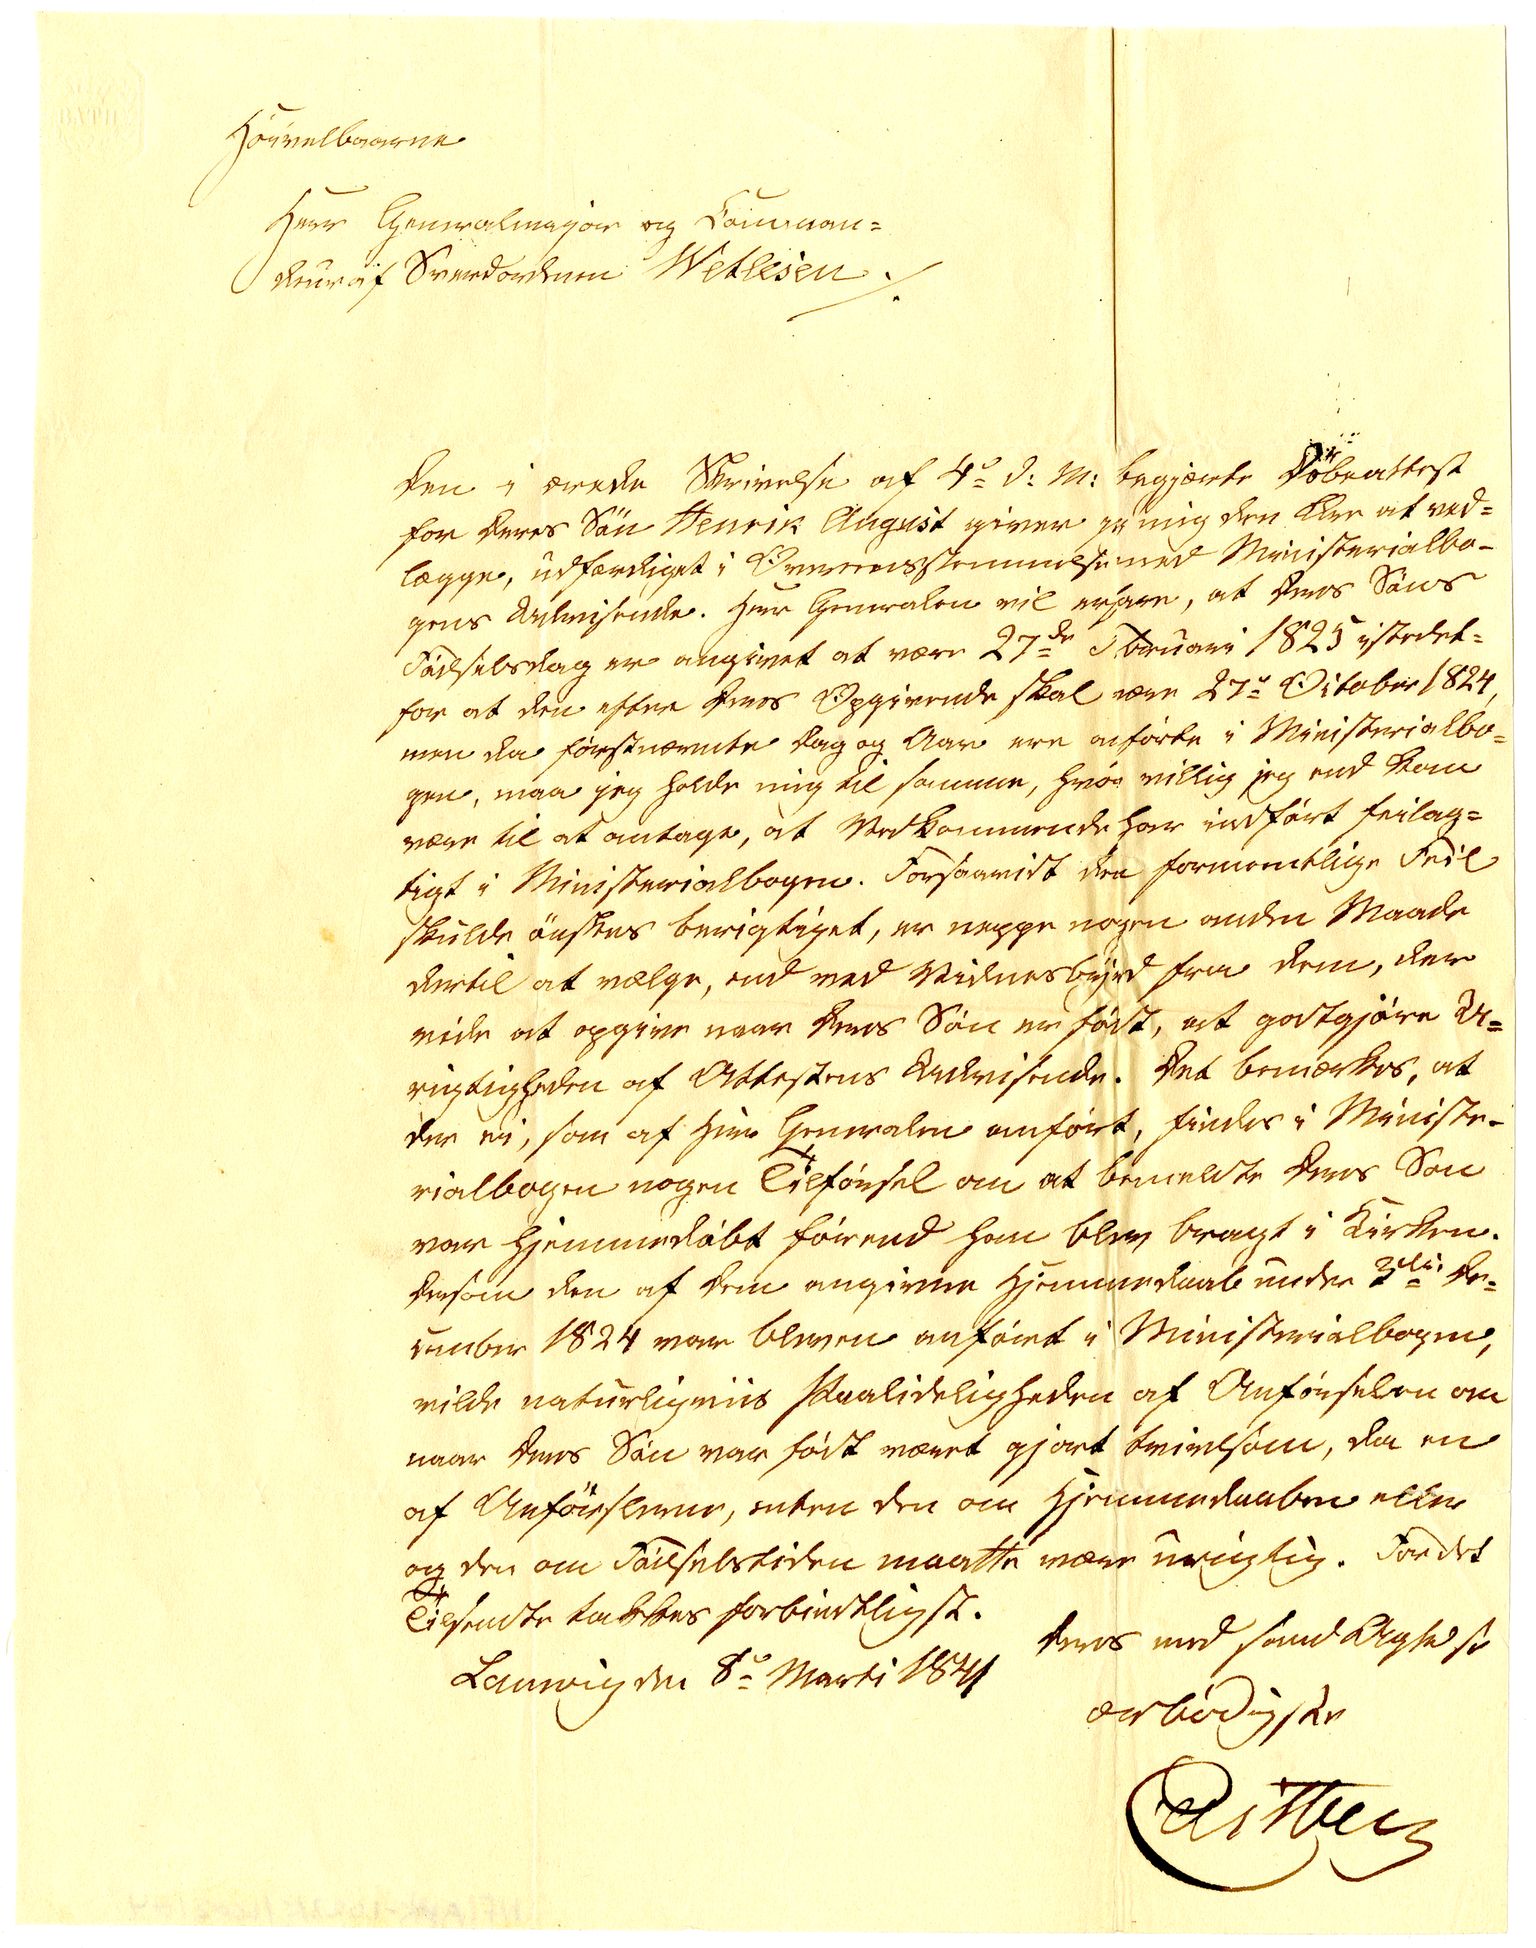 Höivelbaarne
Herr Generalmajor og Comman=
deur af Sværdordenen Wetlesen.
Den i ærede Skrivelse af 4de d: M: begjærte Döbeattest
for Deres Sön Henrik August giver jeg mig den Ære at ved=
lægge, udfærdiget i Overeensstemmelse med Ministerialbo-
gens Udvisende. Herr Generalen vil erfare, at Deres Söns
Födselsdag er angivet at være 27de Februari 1825 istedet=
for at den efter Deres Opgivende skal være 27de October 1824,
men da förstnævnte Dag og Aar ere anförte i Ministerialbo=
gen, maa jeg holde mig til samme, hvor villig jeg end kan
være til at antage, at Vedkommende har indfört feilag=
tigt i Ministerialbogen. Forsaavidt den formentlige Feil
skulde önskes berigtiget, er neppe nogen anden Maade
dertil at vælge, end ved Vidnesbyrd fra dem, der
vide at opgive naar Deres Sön er födt, at godtgjöre U=
rigtigheden af Attestens Udvisende. Det bemærkes, at
der ei, som af Herr Generalen anfört, findes i Ministe-
rialbogen nogen Tilförsel om at bemeldte Deres Sön
var hjemmedöbt förend han blev bragt i Kirken.
Dersom den af Dem angivne Hjemmedaab under 3die De=
cember 1824 var bleven anfört i Ministerialbogen,
vilde naturligviis Paalideligheden af Anförselen om
naar Deres Sön var födt været gjort tvivlsom, da en
af Anförslerne, enten den om Hjemmedaaben eller
og den om Födselstiden maatte være urigtig. For det
Tilsendte takkes forbindtligst.
Laurvig den 8de Marti 1841
Deres med sand Agtelse
ærbödigste